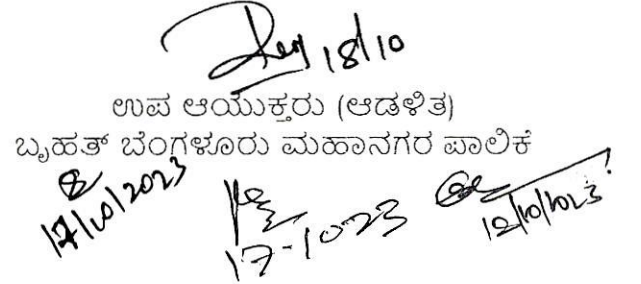 18/10
ಉಪ ಆಯುಕ್ತರು (ಆಡಳಿತ)
ಬೃಹತ್ ಬೆಂಗಳೂರು ಮಹಾನಗರ ಪಾಲಿಕೆ
17/10/2023
17-1023